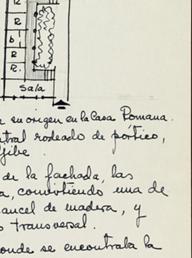 R
R
b
R
R.
Sala
su origen en la Casa Romana.
tral rodeado de pórtico,
jibe.
de la fachada, las
a, convirtiendo una de
ancel de madera, y
o transversal.
onde se encontraba la